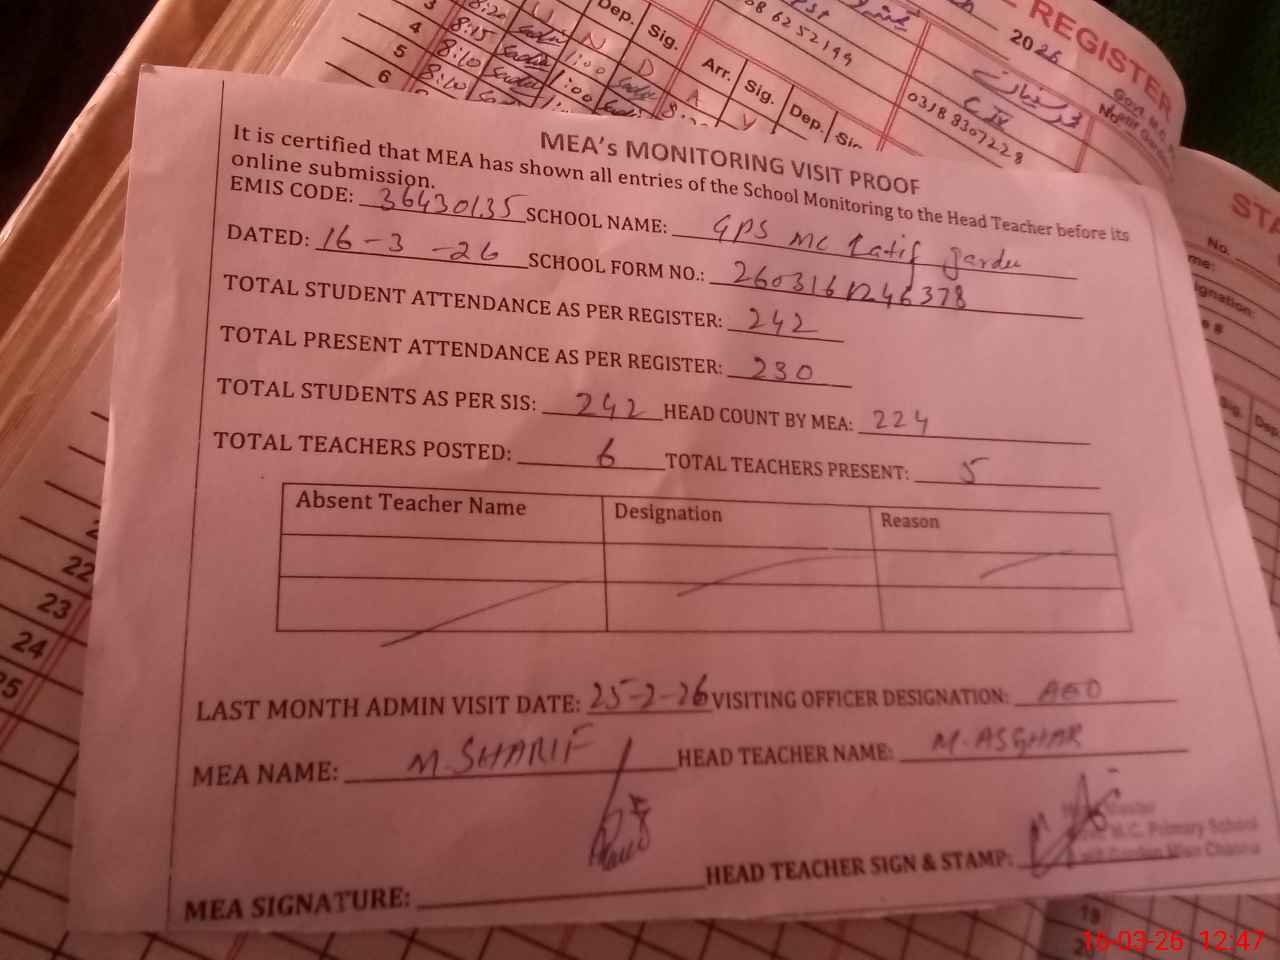 REGISTER
2026
Dep.
Sig.
Arr.
Sig.
Dep.
08 6252199
0318 8307228
No
3
4 8:15 1:00
5 8:10 1:00
6 8:10
MEA's MONITORING VISIT PROOF
It is certified that MEA has shown all entries of the School Monitoring to the Head Teacher before its
online submission.
EMIS CODE: 36430135 SCHOOL NAME: GPS MC Latif garden
DATED: 16-3-26 SCHOOL FORM NO.:
TOTAL STUDENT ATTENDANCE AS PER REGISTER: 242
TOTAL PRESENT ATTENDANCE AS PER REGISTER: 230
TOTAL STUDENTS AS PER SIS: 242 HEAD COUNT BY MEA: 224
TOTAL TEACHERS POSTED: 6 TOTAL TEACHERS PRESENT: 5
Absent Teacher Name Designation Reason
LAST MONTH ADMIN VISIT DATE: 25-2-26 VISITING OFFICER DESIGNATION: AEO
MEA NAME: M.SHARIF HEAD TEACHER NAME: M.ASGHAR
M.C. Primary School
HEAD TEACHER SIGN & STAMP:
MEA SIGNATURE:
No.
Sig.
Dep.
22
23
24
25
19
16-03-26 12:47